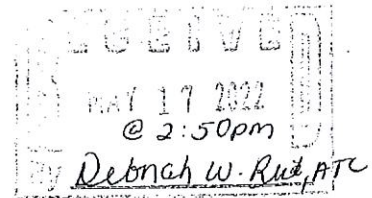 RECEIVED
MAY 17 2022
@ 2:50pm
By Deborah W.